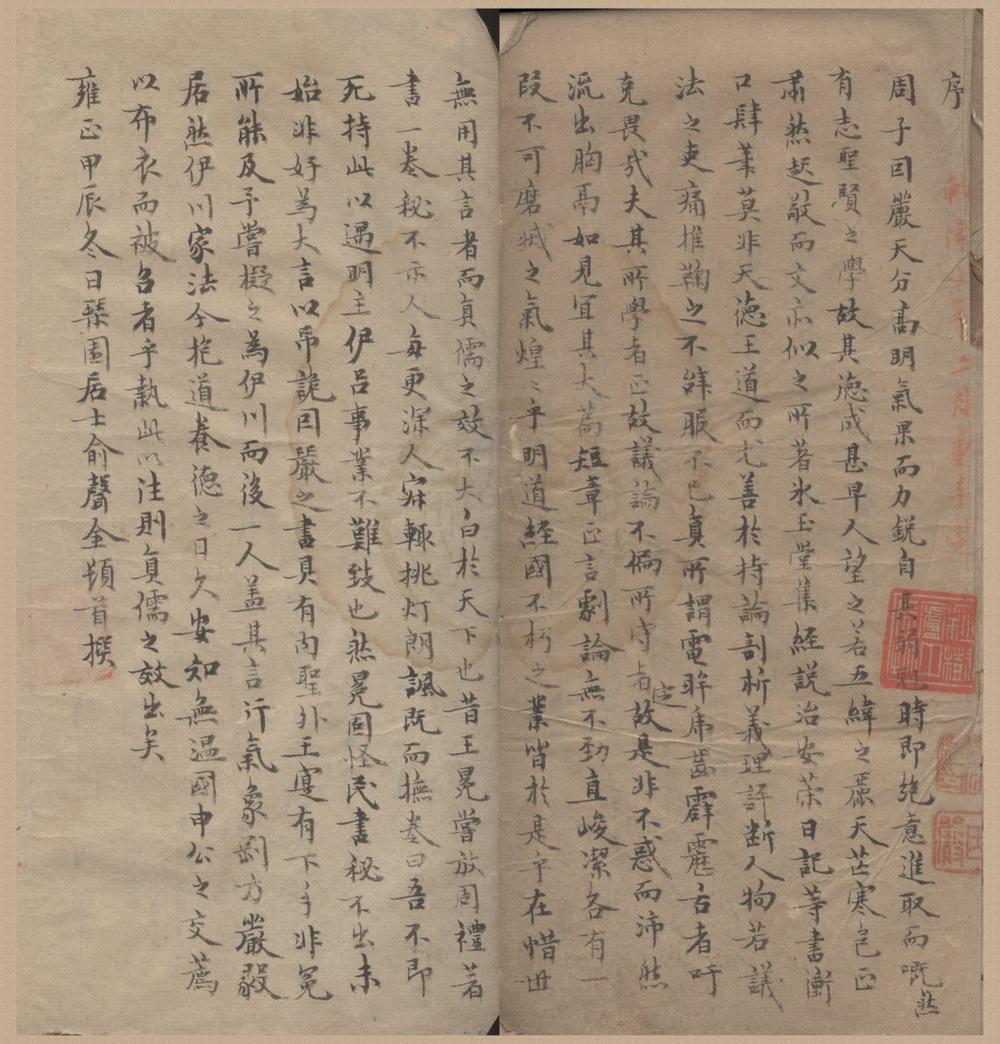 序
周子因嚴天分高明氣果而力銳自其弱冠時即絶意進取而嘅然
有志聖賢之學故其德成甚早人望之若五緯之麗天芒寒色正
肅然起敬而文亦似之所著氷玉堂集經說治安策日記等書衡
口肆筆莫非天德王道而尤善於持論剖析義理評断人物若議
法之吏痛推鞠之不辞服不已真所謂電眸虎齒霹靂舌者吁
克畏哉夫其所學者正故議論不偏所守者定故是非不惑而沛然
流出胸鬲如見宜其大篇短章正言劇論無不勁直峻潔各有一
段不可磨滅之氣煌〻乎明道經國不朽之業皆於是乎在惜世
無用其言者而真儒之效不大白於天下也昔王冕嘗放周禮著
書一卷秘不示人每更深人寂輒挑灯朗諷既而撫卷曰吾不即
死持此以遇明主伊吕事業不難致也然冕固怪民書秘不出未
始非好為大言以吊詭因嚴之書具有内聖外王寔有下手非冕
所能及予嘗擬之為伊川而後一人盖其言行氣象剴方嚴毅
居然伊川家法今抱道養德之日久安知無温國申公之交薦
以布衣而被召者乎執此以往則真儒之效出矣
雍正甲辰冬日琹圃居士俞聲金頓首撰